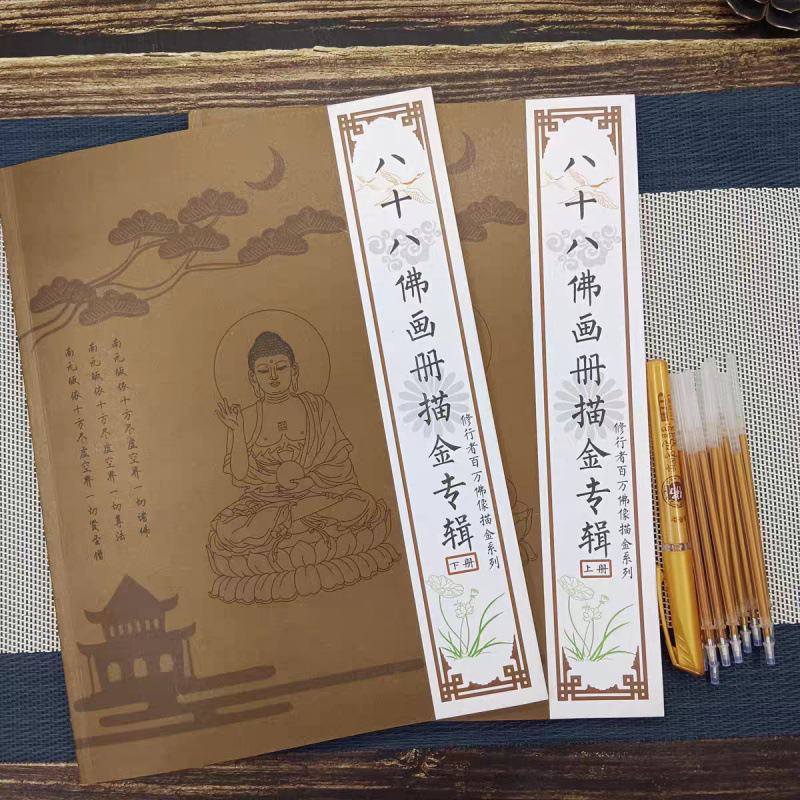 南无皈依十方尽虚空界一切诸佛
南无皈依十方尽虚空界一切尊法
南无皈依十方尽虚空界一切贤圣僧
八十八佛画册描金专辑
修行者百万佛像描金系列
下册
八十八佛画册描金专辑
修行者百万佛像描金系列
上册